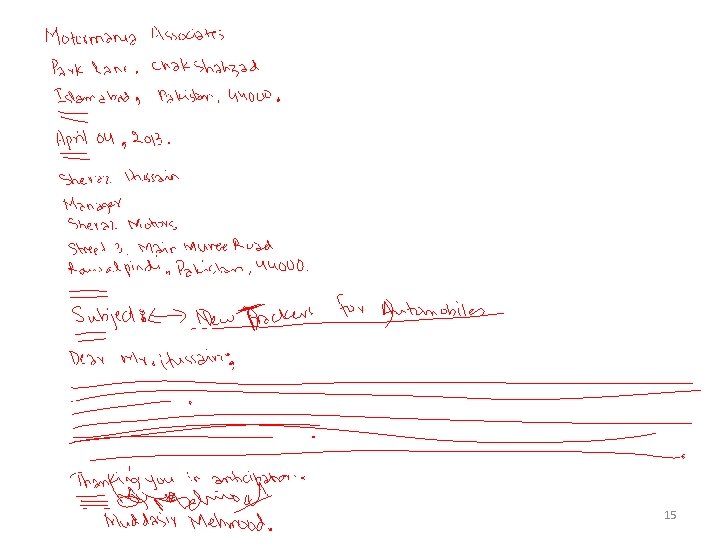 Motormania Associates
Park Lane, Chakshahzad
Islamabad, Pakistan, 44000.
April 04, 2013.
Sheraz Hussain
Manager
Sheraz Motors
Street 3, Main Muree Road
Rawalpindi, Pakistan, 44000.
Subject: New Trackers for Automobiles
Dear Mr. Hussain:
Thanking you in anticipation.
Muddasir Mehmood.
15